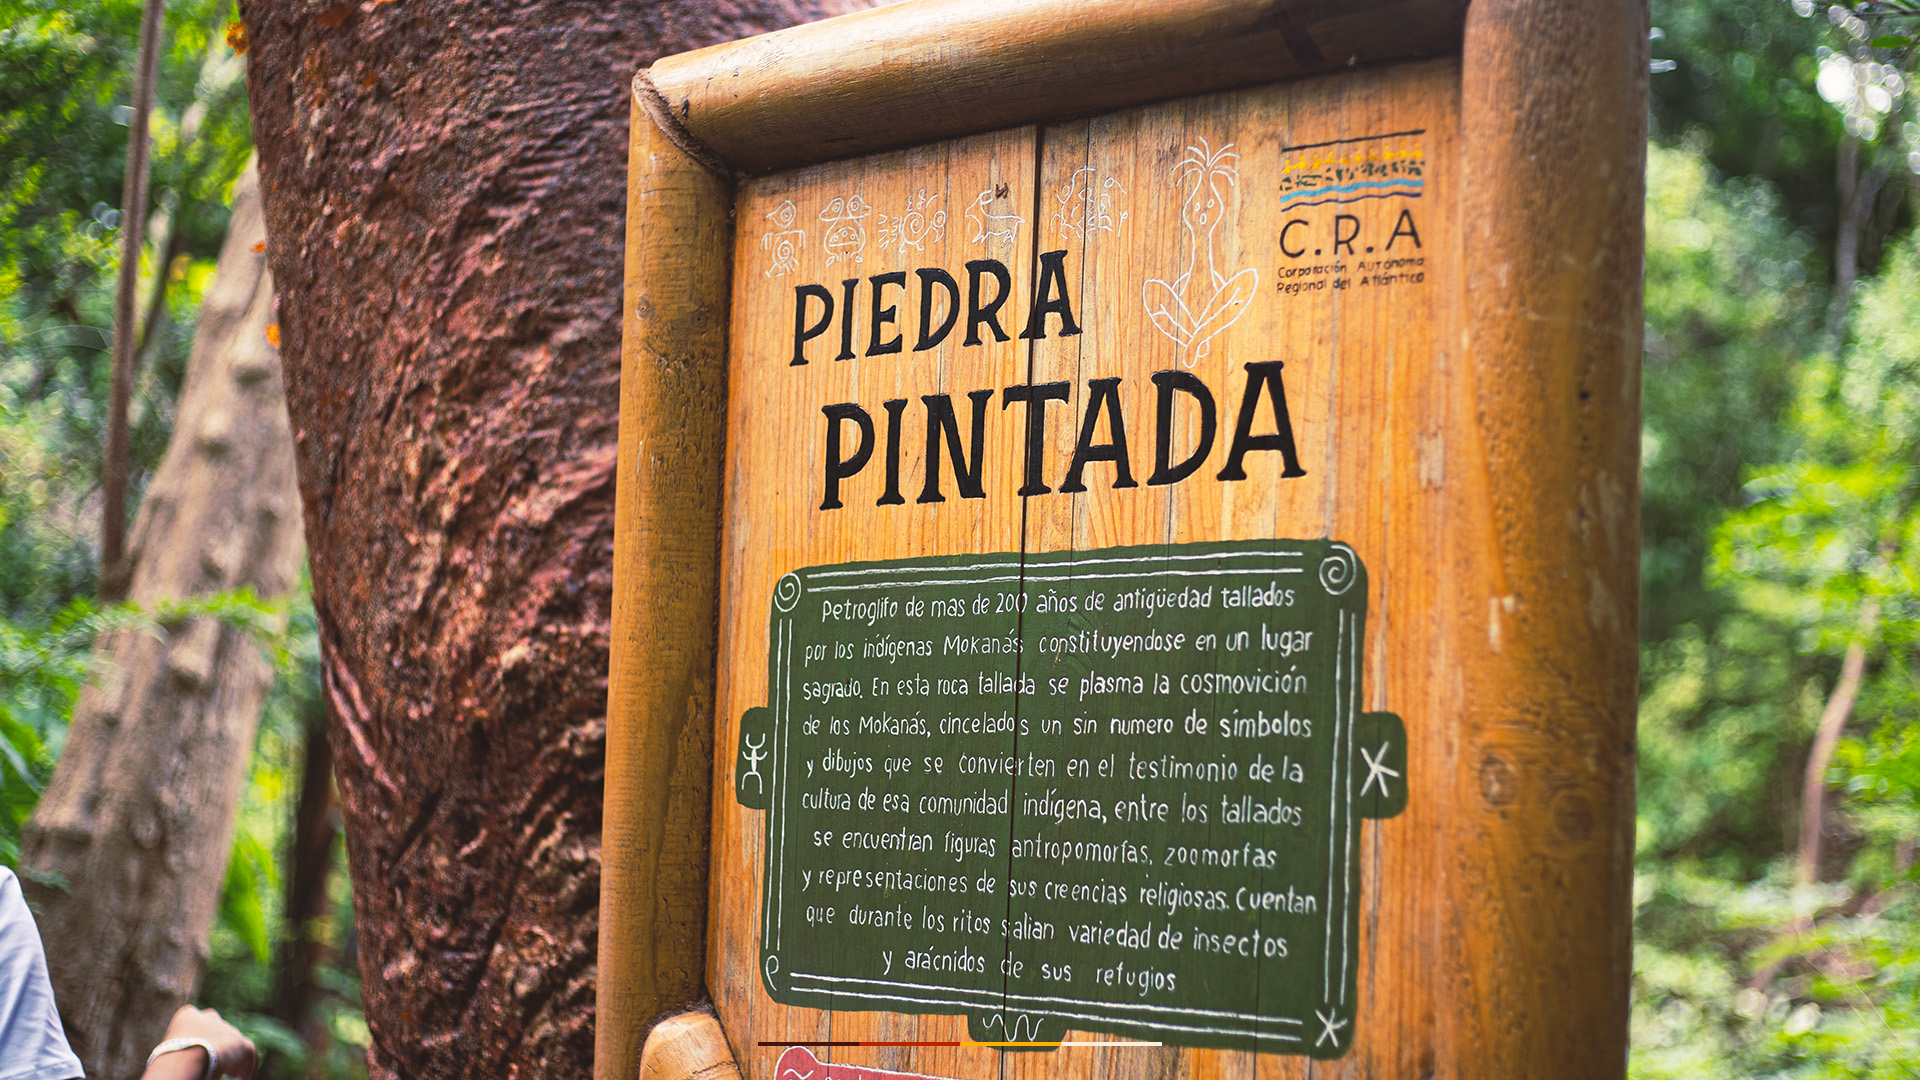 C.R.A
Corporación Autónoma
Regional del Atlántico
PIEDRA
PINTADA
Petroglifo de mas de 200 años de antigüedad tallados
por los indígenas Mokanás constituyendose en un lugar
sagrado. En esta roca tallada se plasma la cosmovición
de los Mokanás, cincelados un sin numero de símbolos
y dibujos que se convierten en el testimonio de la
cultura de esa comunidad indígena, entre los tallados
se encuentran figuras antropomorfas, zoomorfas
y representaciones de sus creencias religiosas. Cuentan
que durante los ritos salian variedad de insectos
y arácnidos de sus refugios